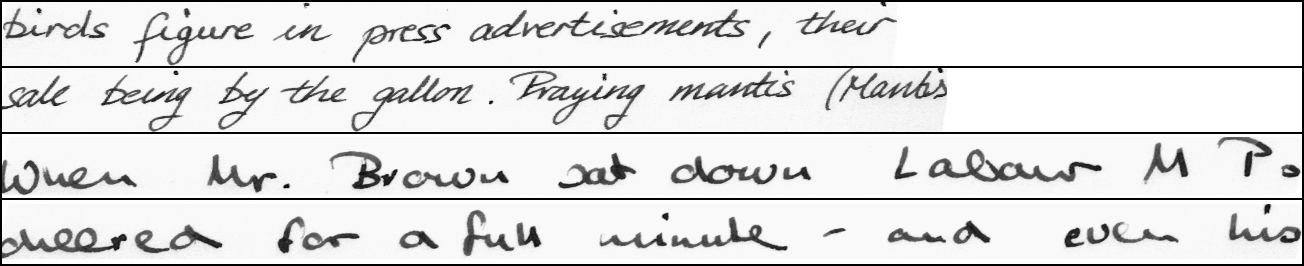 birds figure in press advertisements, their
sale being by the gallon. Praying mantis (Mantis
When Mr. Brown sat down Labour M Ps
cheered for a full minute - and even his